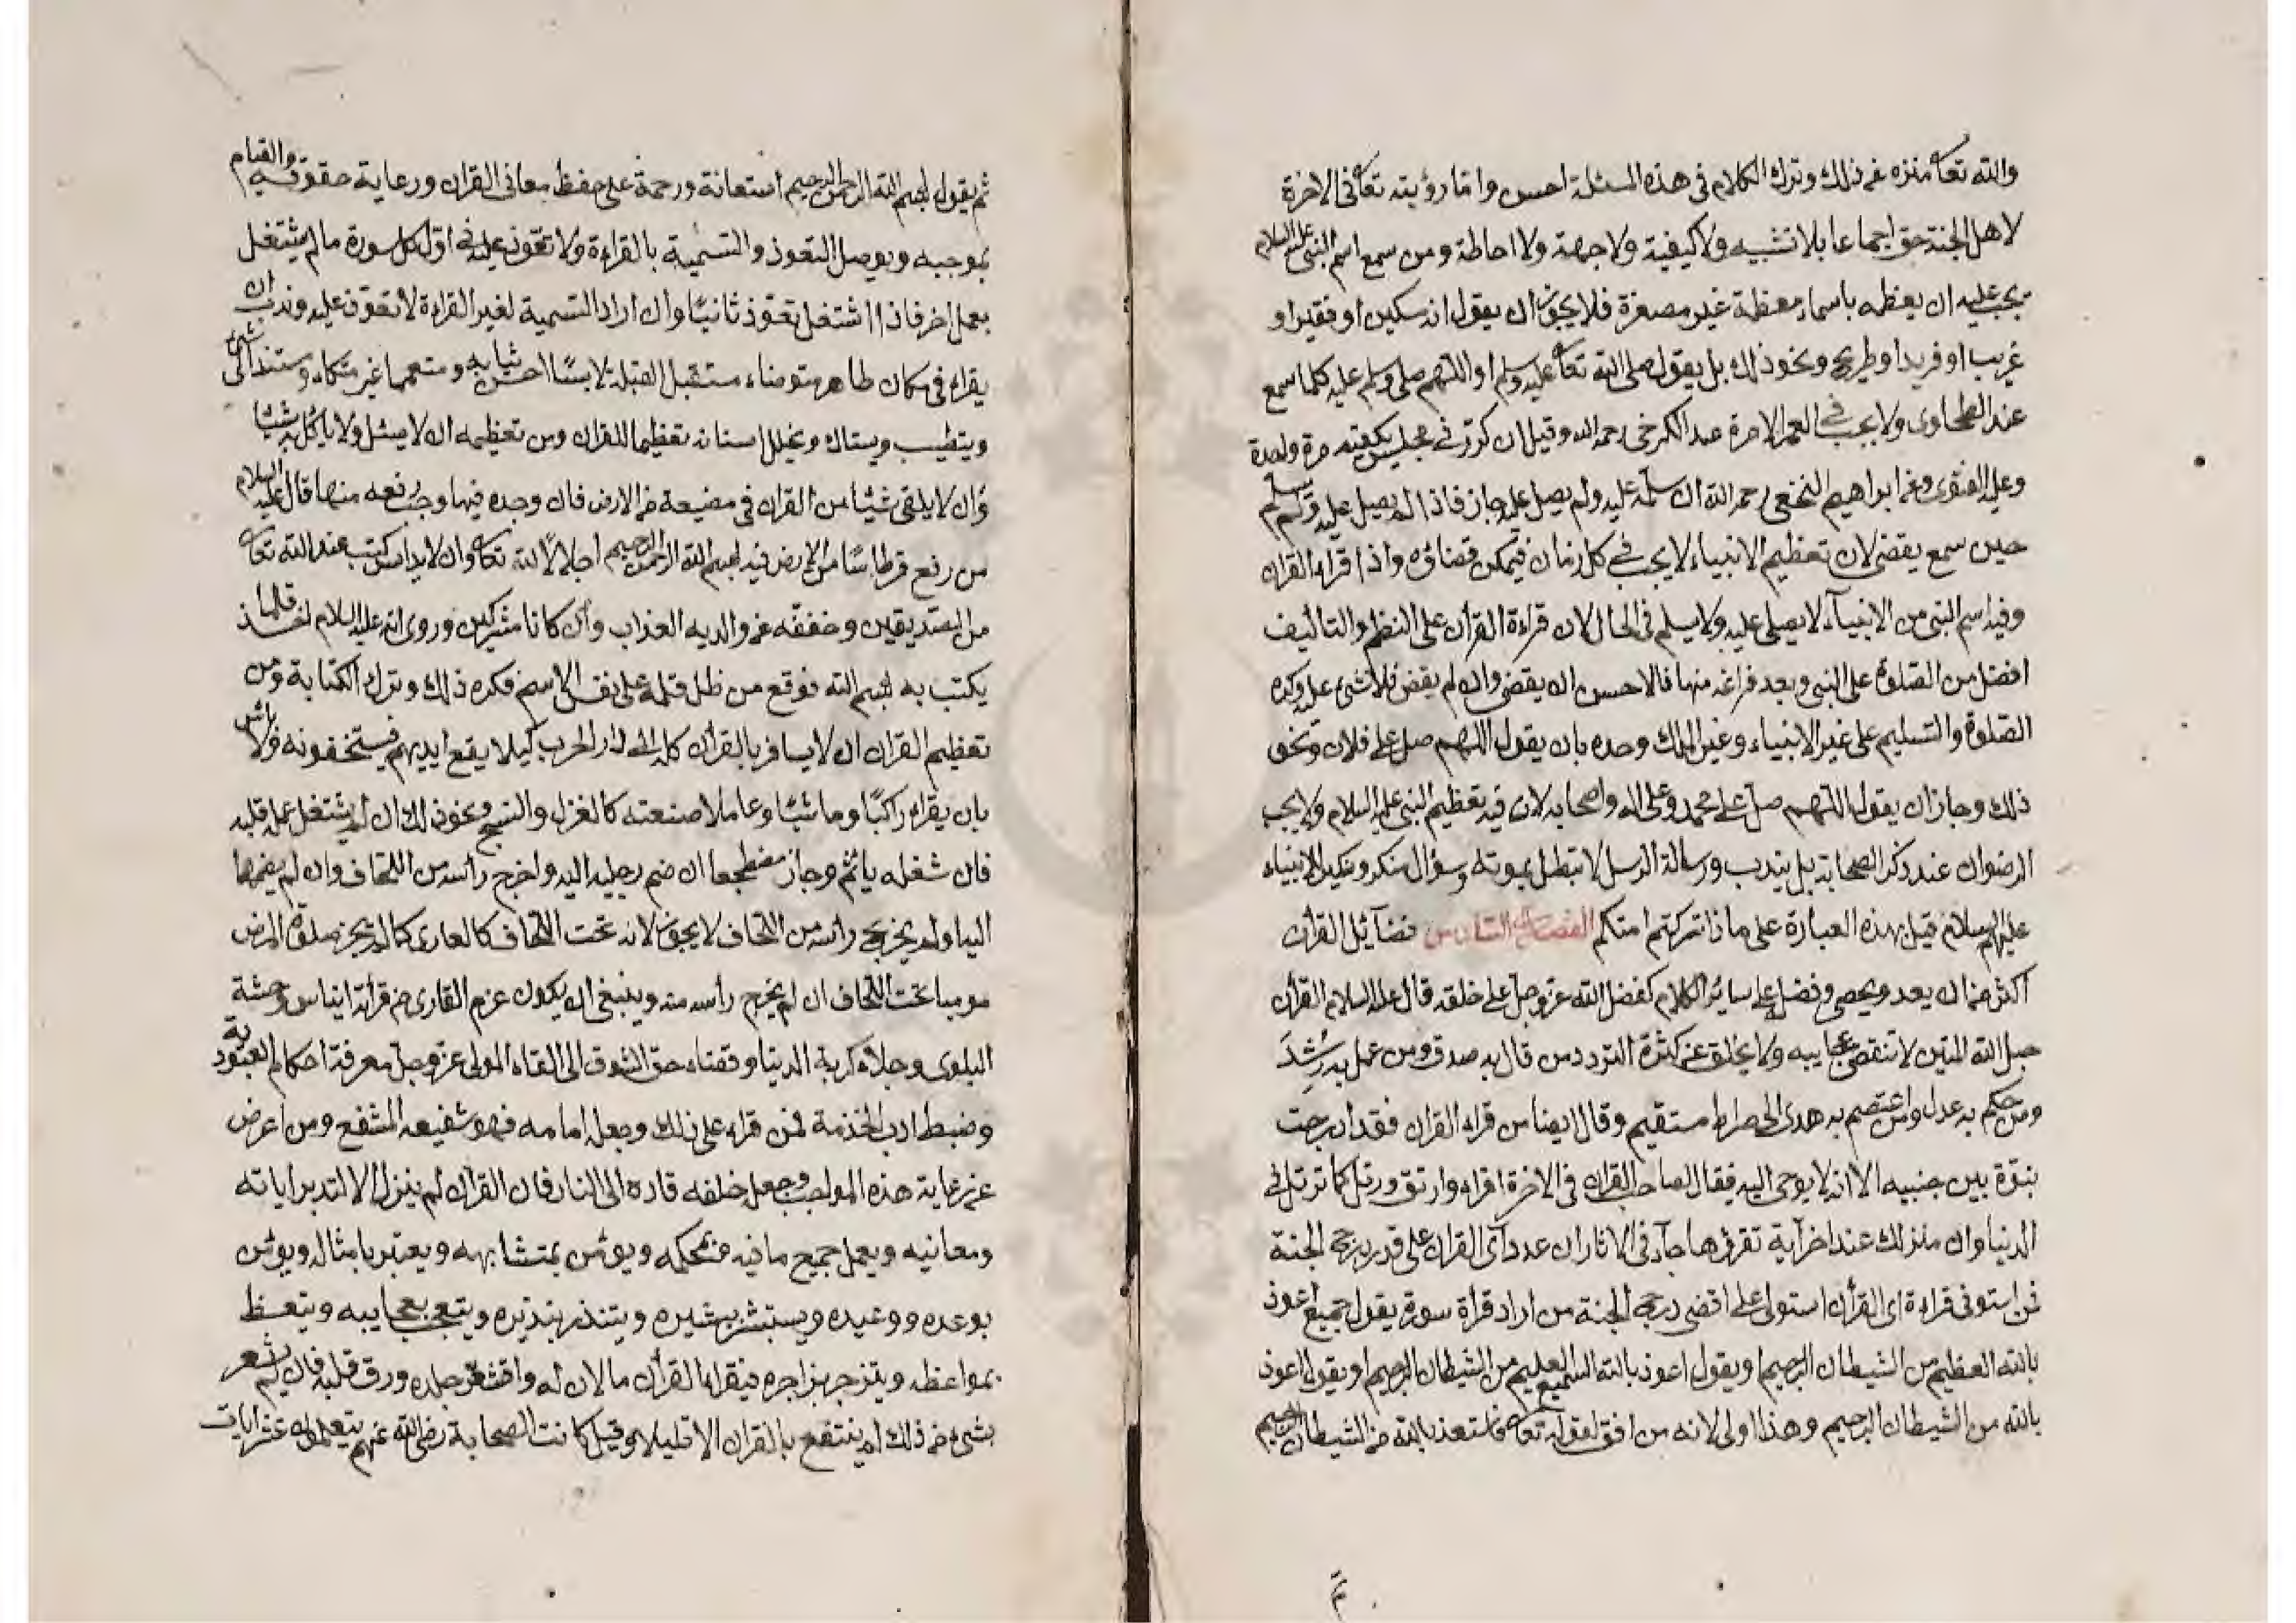 والله تعا منزه عن ذلك وترك الكلام فى هذه المسئلة احسن واما رؤيته تعا فى الاخرة
لاهل الجنة حق اجماعا بلا تشبيه ولا كيفية ولا جهة ولا احاطة ومن سمع اسم النبى عليه السلام
يجب عليه ان يعظمه باسماء معظمة غير مصغرة فلا يجوز ان يقول انه مسكين او فقير او
غريب او فريد او طريح ونحو ذلك بل يقول صلى الله تعا عليه وسلم او اللهم صلى وسلم عليه كلما سمع
عند الطحاوى ولا يجب فى العمر الا مرة عند الكرخى رحمه الله وقيل ان كرر فى مجلس يكفيه مرة واحدة
وعليه الفتوى وعن ابراهيم النخعى رحمه الله ان سلم عليه ولم يصل عليه جاز فاذا لم يصل عليه ولم يسلم
حين سمع يقضى لان تعظيم الانبياء لا يجب فى كل زمان فيمكن قضاؤه واذا قراء القران
وفيه اسم النبى من الانبيآء لا يصلى عليه ولا يسلم فى الحال لان قراءة القرأن على النظم والتأليف
افضل من الصلوة على النبى وبعد فراغه منها فالاحسن ان يقضى وان لم يقض فلا شئ عليه وكره
الصلوة والتسليم على غير الانبياء وغير الملك وحده بان يقول اللهم صل على فلان ونحو
ذلك وجاز ان يقول اللهم صل على محمد وعلى اله واصحابه لان فيه تعظيم النبى عليه السلام ولا يجب
الرضوان عند ذكر الصحابة بل يندب ورسالة الرسل لا تبطل بموته وسؤال منكر ونكير للانبياء
عليهم السلام قيل بهذه العبارة على ماذا تركتم امتكم الفصل السادس فضآئل القرأن
اكثر من ان يعد ويحصى وفضل على سائر الكلام كفضل الله عز وجل على خلقه قال عليه السلام القرأن
حبل الله المتين لا تنقضى عجايبه ولا يخلق عن كثرة التردد من قال به صدق ومن عمل به رشد
ومن حكم به عدل ومن اعتصم به هدى الى صراط مستقيم وقال ايضا من قراء القران فقد ادرجت
نبوة بين جنبيه الا انه لا يوحى اليه فقال لصاحب القران فى الاخرة اقراء وارتق ورتل كما ترتل فى
الدنيا وان منزلك عند اخر آية تقرئها جآء فى الاثار ان عدد آى القران على قدر درجة الجنة
فمن استوفى قراءة اى القرأن استولى على اقصى درجة الجنة من اراد قرأة سورة يقول جميع اعوذ
بالله العظيم من الشيطان الرجيم او يقول اعوذ بالله السميع العليم من الشيطان الرجيم او يقول اعوذ
بالله من الشيطان الرجيم وهذا اولى لانه من افق لقوله تعا فاستعذ بالله من الشيطان الرجيم
ثم يقول بسم الله الرحمن الرحيم استعانة ورحمة على حفظ معانى القران ورعاية حقوقه والقيام
بموجبه ويوصل التعوذ والتسمية بالقراءة ولا تعوذ عليه فى اول كل سورة مالم يشتغل
بعمل اخر فاذا اشتغل تعوذ ثانيًا وان اراد التسمية لغير القراءة لا تعوذ عليه وندب ان
يقراء فى مكان طاهر متوضاء مستقبل القبلة لابسًا احسن ثيابه ومتعمما غير متكاء ومستند الى شئ
ويتطيب ويستاك ويخلل اسنانه تعظيما للقران ومن تعظيمه ان لا يسئل ولا يأكل به شيئا
وان لا يلقى شيئا من القران فى مضيعة من الارض فان وجده فيها وجب رفعه منها قال عليه السلام
من رفع قرطاسًا من الارض فيه بسم الله الرحمن الرحيم اجلالًا لله تعا وان لا يداس كتب عند الله تعا
من الصديقين وخفف عن والديه العذاب وان كانا مشركين وروى انه عليه السلام اخذ قلما
يكتب به بسم الله فوقع من ظل قلمه على نفس الاسم فكره ذلك وترك الكتابة ومن
تعظيم القران ان لا يسافر بالقرأن كله الى دار الحرب كيلا يقع ايديهم فيستخفونه ولا بأس
بان يقراء راكبًا وماشيًا وعاملا صنعته كالغزل والنسج ونحو ذلك ان لم يشتغل عمله قلبه
فان شغله يأثم وجاز مضطجعا ان ضم رجليه اليه واخرج رأسه من اللحاف وان لم يضمها
اليه او لم يخرج رأسه من اللحاف لا يجوز لانه تحت اللحاف كالعارى كما لم يجز صلوة المرض
موميا تحت اللحاف ان لم يخرج رأسه منه وينبغى ان يكون عزم القارى من قرأته ايناس وحشة
البلوى وجلاء كربة الدنيا وقضاء حق الشوق الى القاء المولى عز وجل معرفة احكام العبودية
وضبط ادب الخذمة فمن قراء على ذلك وجعله امامه فهو شفيعه المشفع ومن اعرض
عن رعاية هذه المواجب وجعل خلفه قاده الى النار فان القران لم ينزل الا لتدبر اياته
ومعانيه ويعمل جميع ما فيه من محكمه ويؤمن بمتشابهه ويعتبر بامثاله ويؤمن
بوعده ووعيده ويستبشر ببشيره ويتنذر بنذيره ويتعجب بعجايبه ويتعظ
بمواعظه ويتزجر بزاجره فيقراء القرأن مالان له واقشعر جلده ورق قلبه فان لم يشعر
بشئ من ذلك لم ينتفع بالقران الا قليلا وقيل كانت الصحابة رضى الله عنهم يتعلموا له عشر ايات